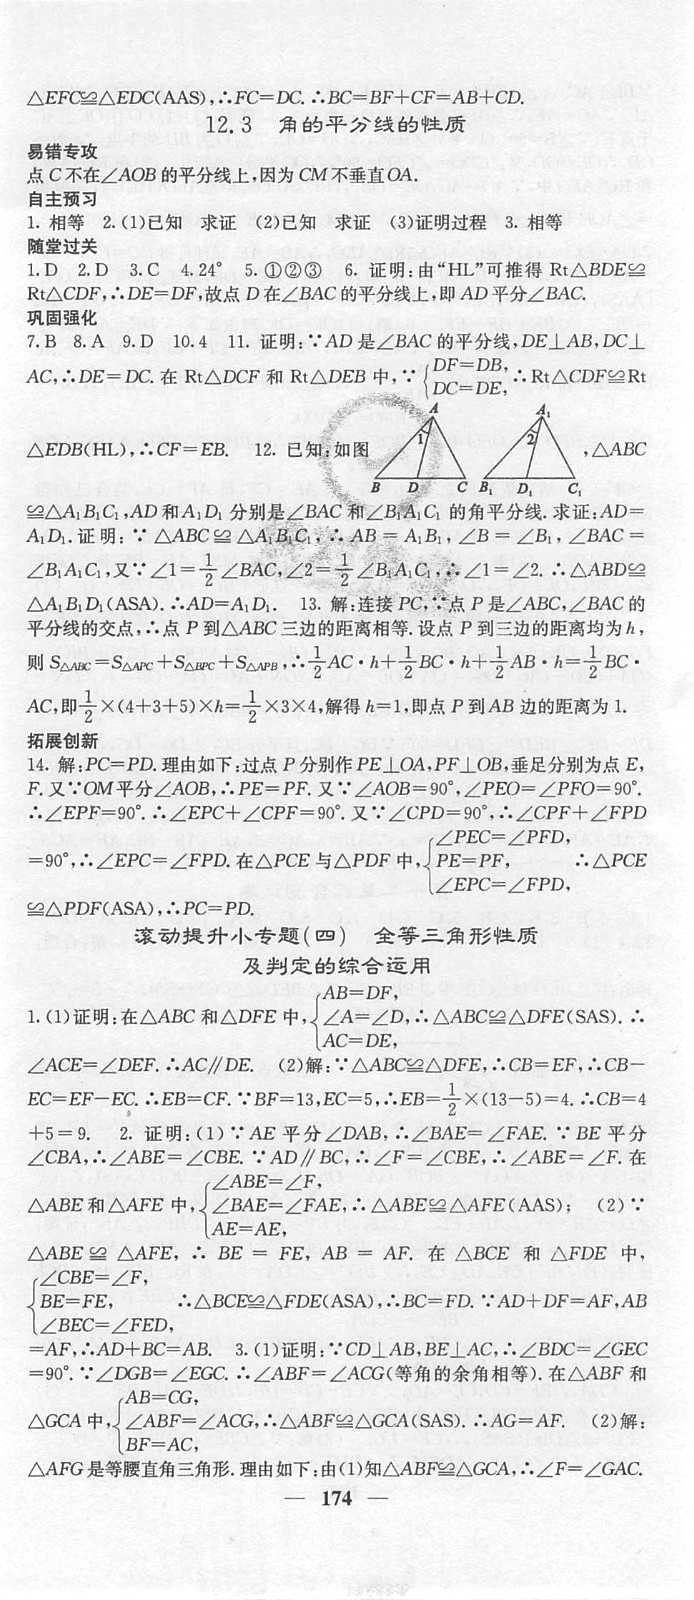 △EFC≌△EDC(AAS),∴FC=DC.∴BC=BF+CF=AB+CD.
12.3 角的平分线的性质
易错专攻
点C不在∠AOB的平分线上,因为CM不垂直OA.
自主预习
1. 相等 2.(1)已知 求证 (2)已知 求证 (3)证明过程 3. 相等
随堂过关
1.D 2.D 3.C 4.24° 5.①②③ 6. 证明:由“HL”可推得 Rt△BDE≌
Rt△CDF,∴DE=DF,故点 D 在∠BAC的平分线上,即 AD平分∠BAC.
巩固强化
7.B 8.A 9.D 10.4 11. 证明:∵AD 是∠BAC 的平分线,DE⊥AB,DC⊥
AC,∴DE=DC. 在 Rt△DCF 和 Rt△DEB 中,∵{DF=DB, DC=DE, ∴Rt△CDF≌Rt
△EDB(HL),∴CF=EB. 12. 已知:如图 A 1 B D C A₁ 2 B₁ D₁ C₁ ,△ABC
≌△A₁B₁C₁,AD和A₁D₁ 分别是∠BAC 和∠B₁A₁C₁ 的角平分线. 求证:AD=
A₁D₁. 证明:∵△ABC≌△A₁B₁C₁,∴AB=A₁B₁,∠B=∠B₁,∠BAC=
∠B₁A₁C₁,又∵∠1=1/2∠BAC,∠2=1/2∠B₁A₁C₁,∴∠1=∠2.∴△ABD≌
△A₁B₁D₁(ASA).∴AD=A₁D₁. 13. 解:连接 PC,∵点 P 是∠ABC,∠BAC 的
平分线的交点,∴点 P 到△ABC 三边的距离相等. 设点 P 到三边的距离均为 h,
则 S△ABC=S△APC+S△BPC+S△APB,∴1/2AC·h+1/2BC·h+1/2AB·h=1/2BC·
AC,即1/2×(4+3+5)×h=1/2×3×4,解得 h=1,即点 P 到 AB 边的距离为 1.
拓展创新
14. 解:PC=PD. 理由如下:过点 P 分别作 PE⊥OA,PF⊥OB,垂足分别为点 E,
F. 又∵OM 平分∠AOB,∴PE=PF. 又∵∠AOB=90°,∠PEO=∠PFO=90°.
∴∠EPF=90°.∴∠EPC+∠CPF=90°. 又∵∠CPD=90°,∴∠CPF+∠FPD
=90°,∴∠EPC=∠FPD. 在△PCE 与△PDF 中,{∠PEC=∠PFD, PE=PF, ∠EPC=∠FPD, ∴△PCE
≌△PDF(ASA),∴PC=PD.
滚动提升小专题(四) 全等三角形性质
及判定的综合运用
1.(1)证明:在△ABC 和△DFE 中,{AB=DF, ∠A=∠D, AC=DE, ∴△ABC≌△DFE(SAS).∴
∠ACE=∠DEF.∴AC∥DE. (2)解:∵△ABC≌△DFE,∴CB=EF,∴CB-
EC=EF-EC.∴EB=CF.∵BF=13,EC=5,∴EB=1/2×(13-5)=4.∴CB=4
+5=9. 2. 证明:(1)∵AE 平分∠DAB,∴∠BAE=∠FAE.∵BE 平分
∠CBA,∴∠ABE=∠CBE.∵AD∥BC,∴∠F=∠CBE,∴∠ABE=∠F. 在
△ABE 和△AFE 中,{∠ABE=∠F, ∠BAE=∠FAE, AE=AE, ∴△ABE≌△AFE(AAS); (2)∵
△ABE≌△AFE,∴BE=FE,AB=AF. 在△BCE 和△FDE 中,
{∠CBE=∠F, BE=FE, ∠BEC=∠FED, ∴△BCE≌△FDE(ASA),∴BC=FD.∵AD+DF=AF,AB
=AF,∴AD+BC=AB. 3.(1)证明:∵CD⊥AB,BE⊥AC,∴∠BDC=∠GEC
=90°.∵∠DGB=∠EGC.∴∠ABF=∠ACG(等角的余角相等). 在△ABF 和
△GCA 中,{AB=CG, ∠ABF=∠ACG, BF=AC, ∴△ABF≌△GCA(SAS).∴AG=AF. (2)解:
△AFG 是等腰直角三角形. 理由如下:由(1)知△ABF≌△GCA,∴∠F=∠GAC.
— 174 —